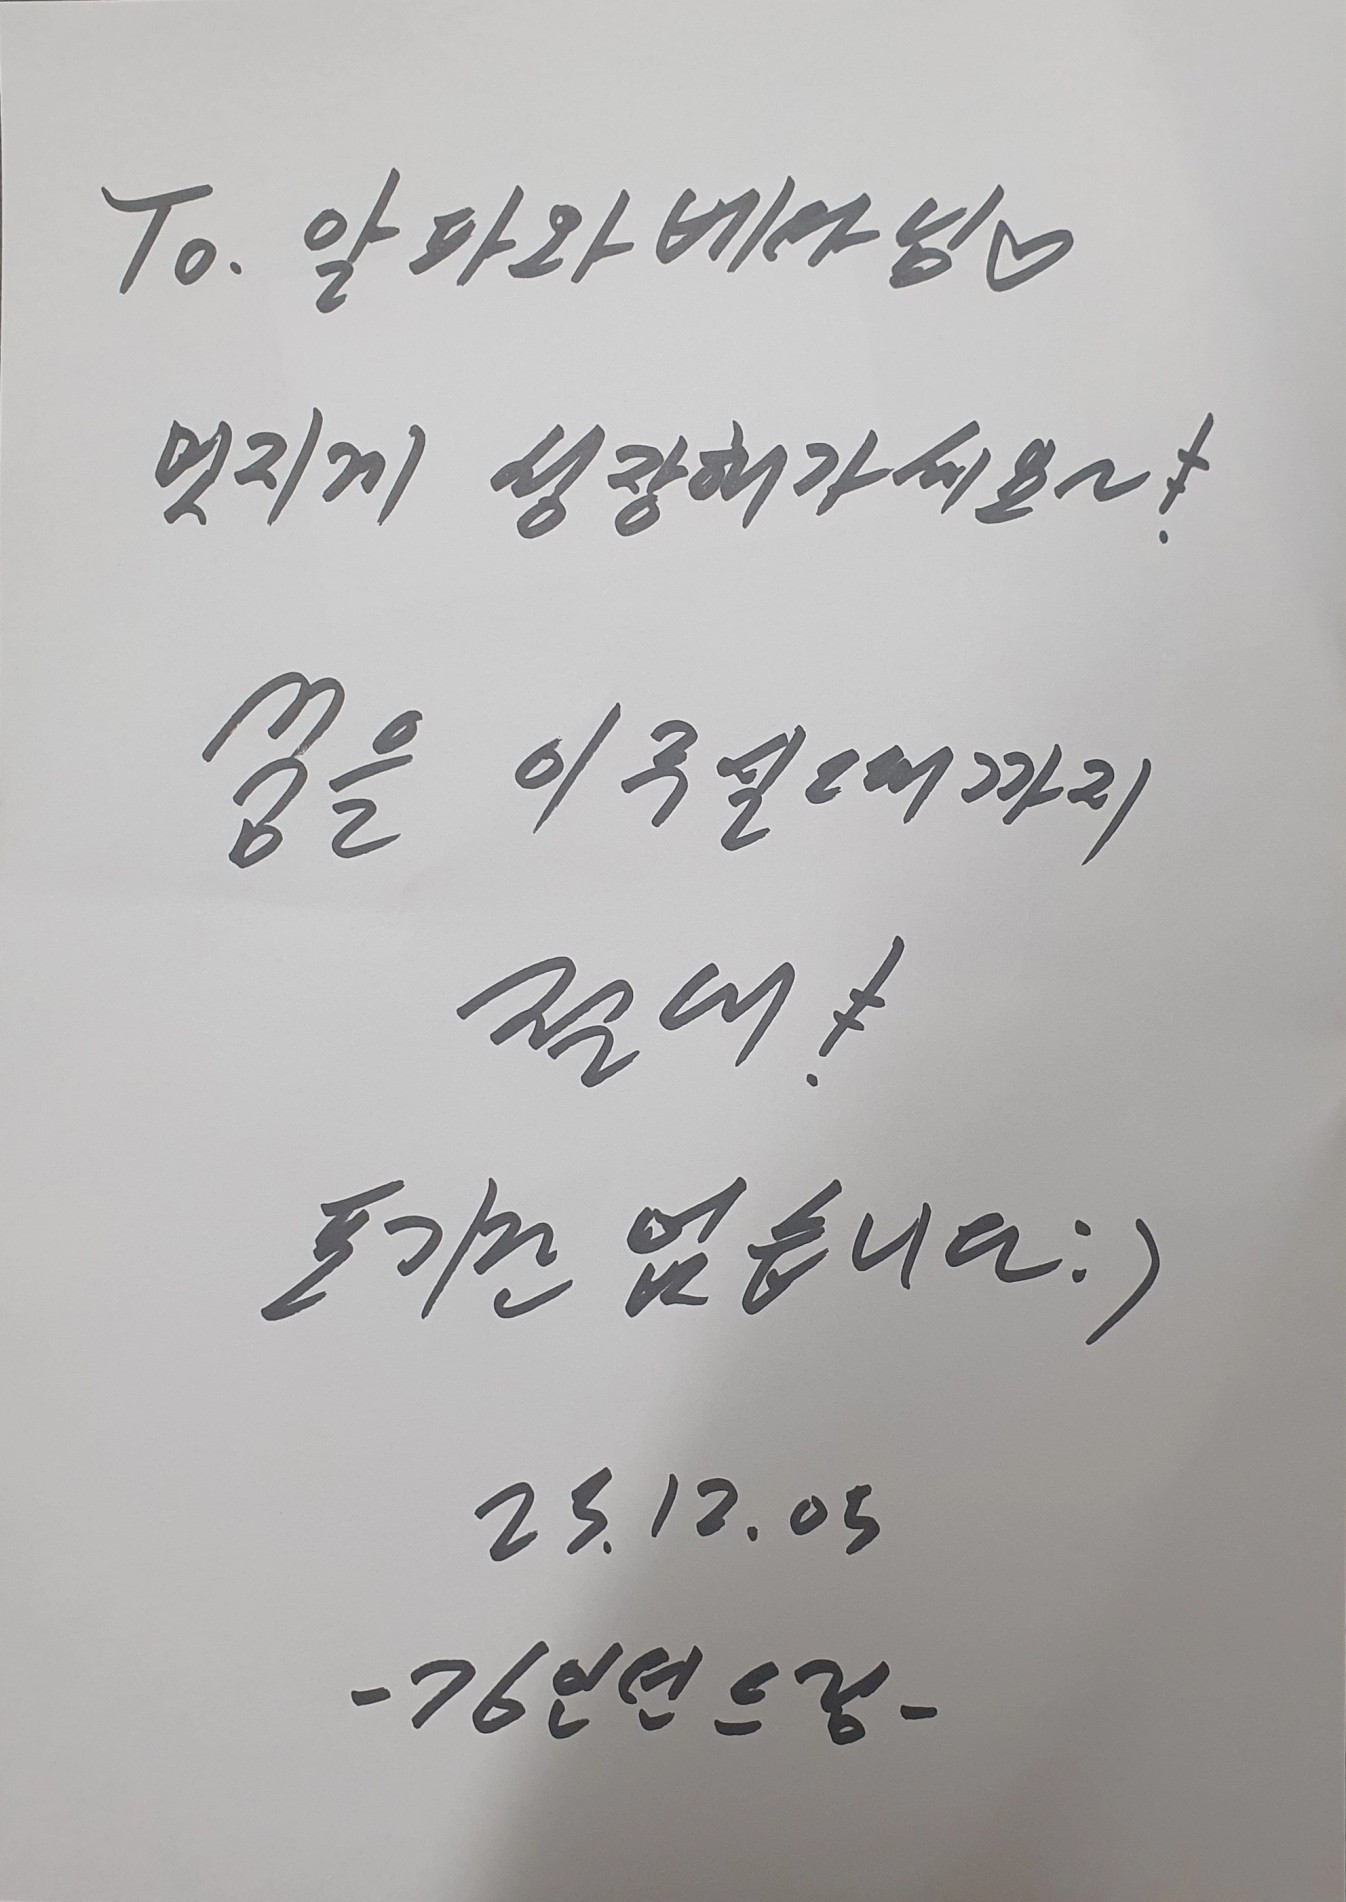 To. 알파와베타님♡
멋지게 성장해가세요~!
꿈을 이루실때까지
절대!
포기란 없습니다:)
25.12.05
드림-